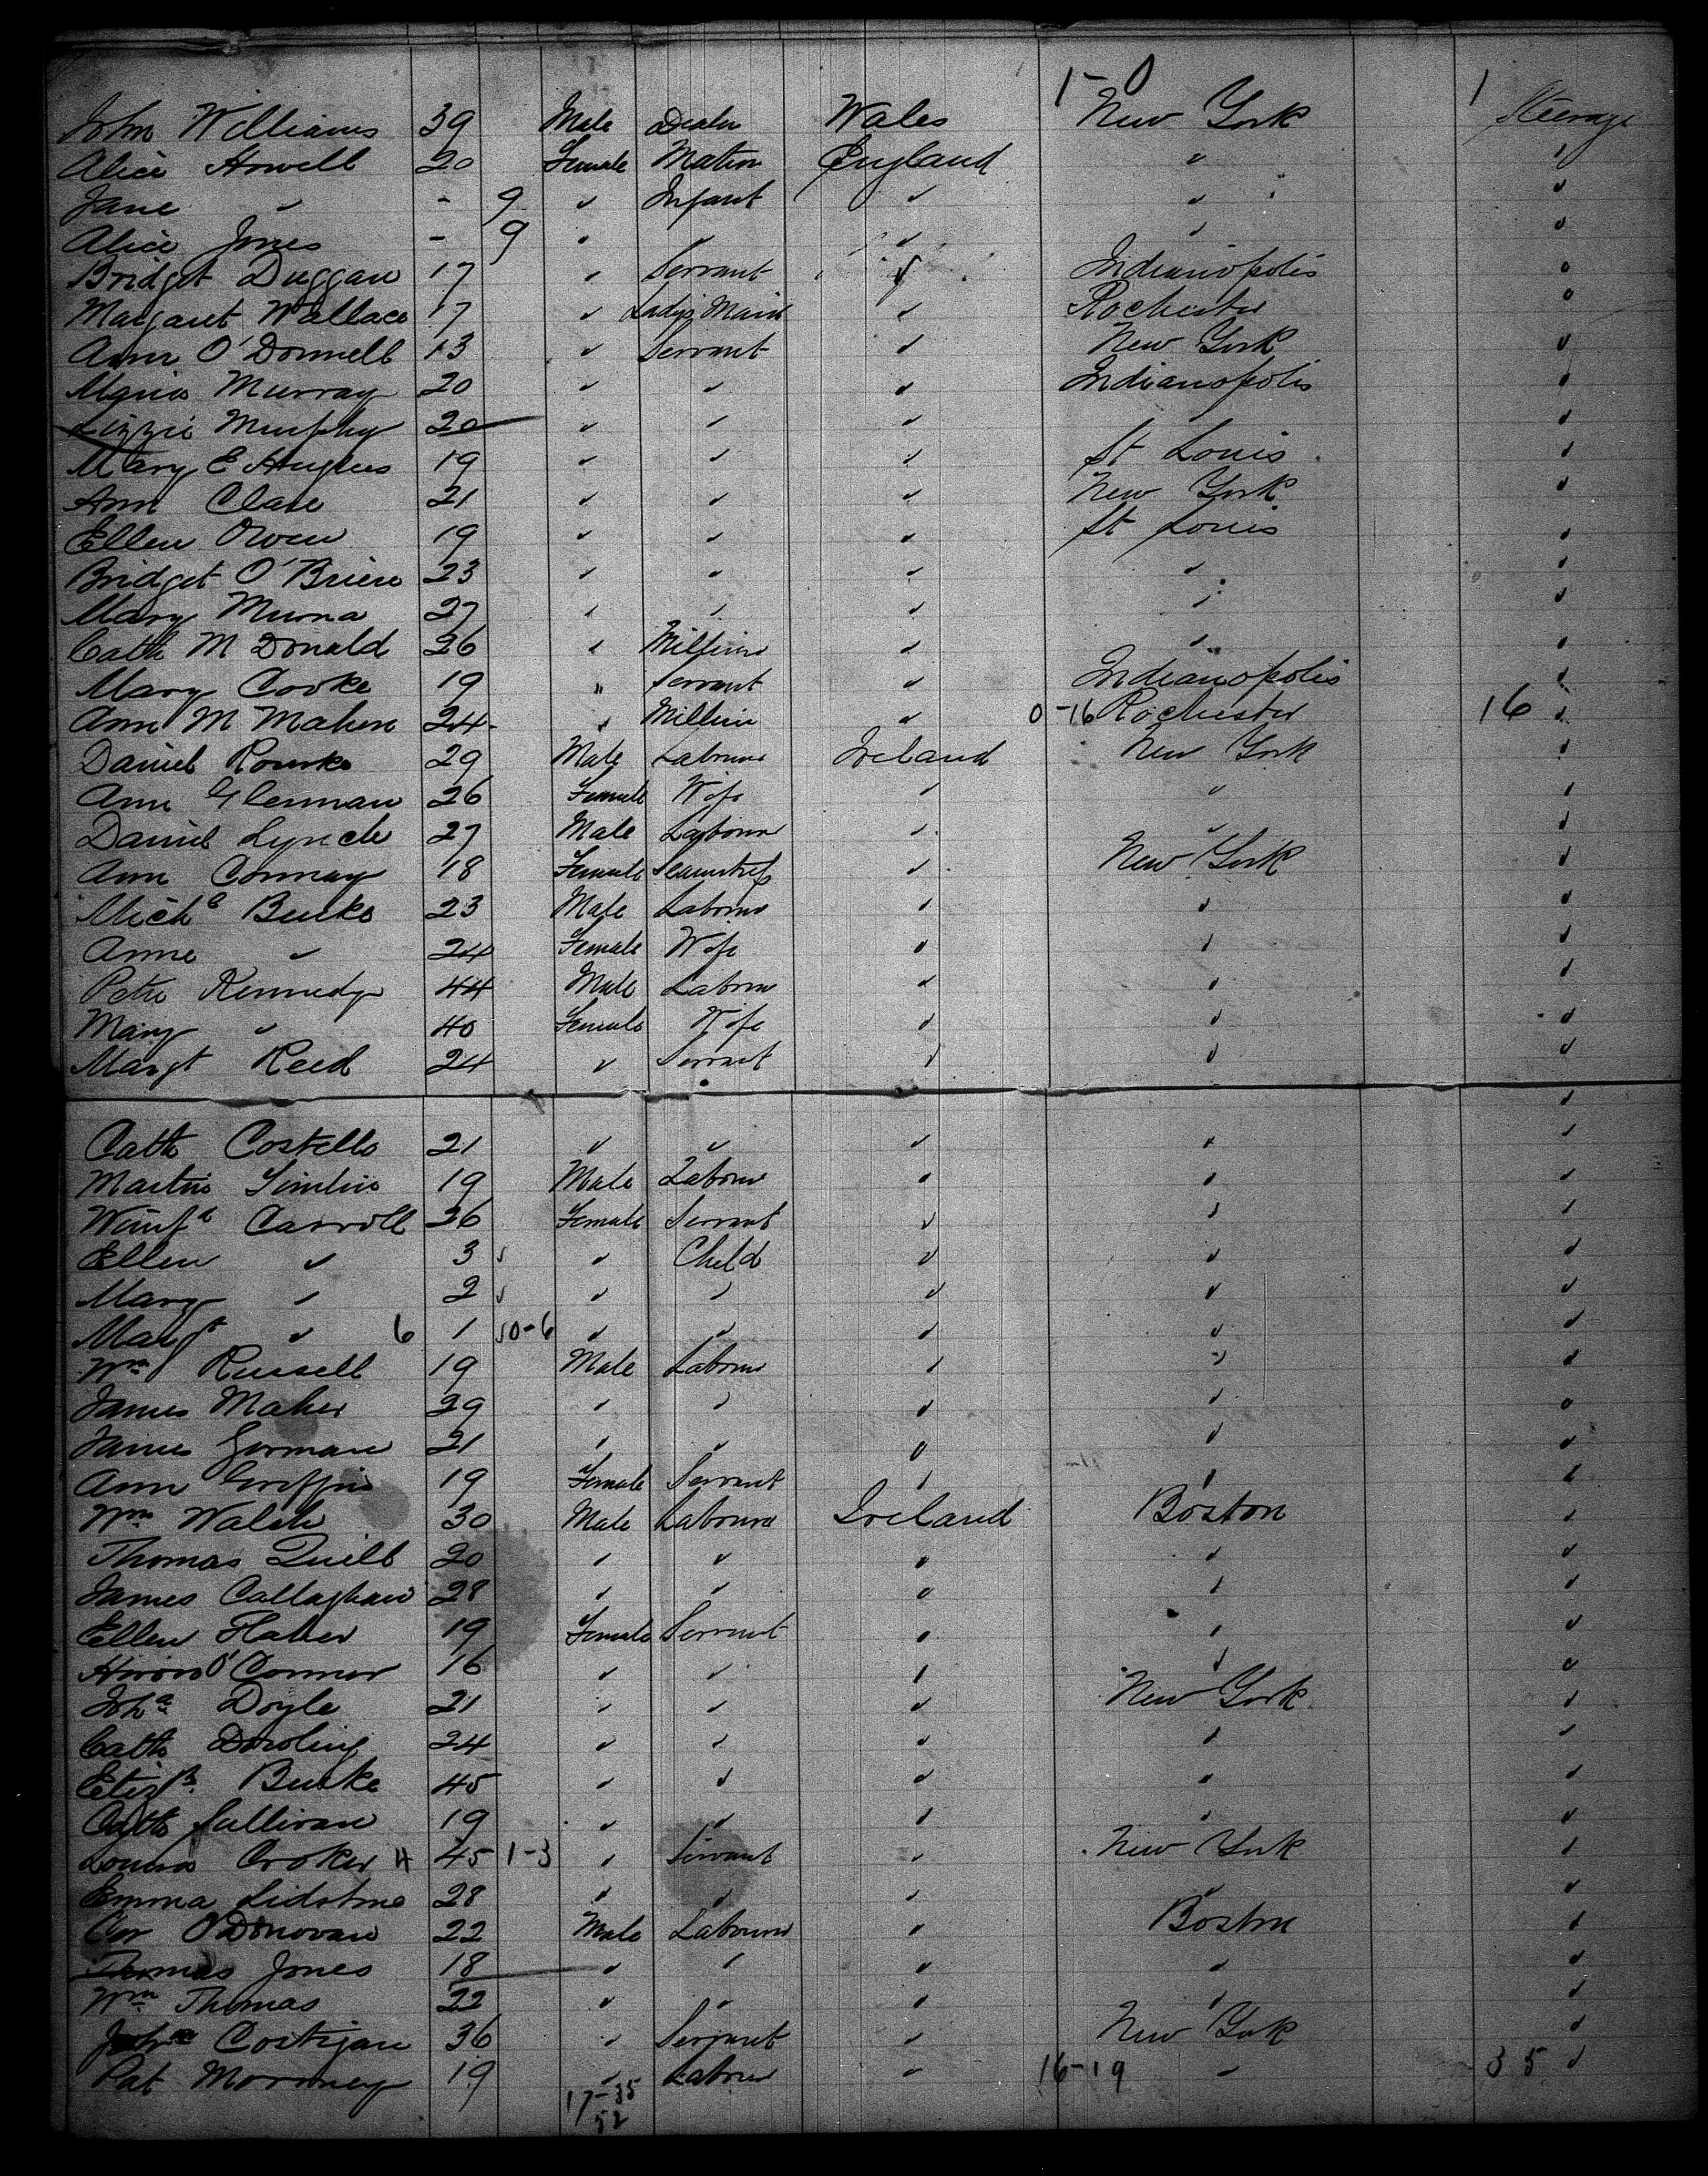 1-0 1
John Williams 39 Male Dealer Wales New York Steerage
Alice Howell 20 Female Matron England " "
Jane " - 9 " Infant " " "
Alice Jones - 9 " " " " "
Bridget Duggan 17 " Servant " Indianopolis "
Margaret Wallace 17 " Ladys Maid " Rochester "
Ann O'Donnell 13 " Servant " New York "
Maria Murray 20 " " " Indianopolis "
Lizzie Murphy 20 " " " "
Mary E Hughes 19 " " " St Louis "
Ann Clare 21 " " " New York "
Ellen Owen 19 " " " St Louis "
Bridget O'Brien 23 " " " " "
Mary Murna 27 " " " " "
Cath McDonald 26 " Milliner " " "
Mary Cooke 19 " Servant " Indianopolis "
Ann McMahon 24 " Milliner " 0-16 Rochester 16 "
Daniel Rourke 29 Male Labourer Ireland New York "
Ann Glennan 26 Female Wife " " "
Daniel Lynch 27 Male Labourer " " "
Ann Conway 18 Female Seamstress " New York "
Michl Burke 23 Male Labourer " " "
Anne " 24 Female Wife " " "
Peter Kennedy 44 Male Labourer " " "
Mary " 40 Female Wife " " "
Margt Reed 24 " Servant " " "
Cath Costello 21 " " " " "
Martin Timlin 19 Male Labourer " " "
Winifd Carroll 26 Female Servant " " "
Ellen " 3 " Child " " "
Mary " 2 " " " " "
Margt " 6 1 0-6 " " " " "
Wm Russell 19 Male Labourer " " "
James Maher 29 " " " " "
James Gorman 21 " " " " "
Ann Griffin 19 Female Servant " " "
Wm Walsh 30 Male Labourer Ireland Boston "
Thomas Quill 20 " " " " "
James Callaghan 28 " " " " "
Ellen Flaher 19 Female Servant " " "
O'Connor 16 " " " " "
Joha Doyle 21 " " " New York "
Cath Dowling 24 " " " " "
Elizh Burke 45 " " " " "
Cath Sullivan 19 " " " " "
Louisa Croker 4 45 1-3 " Servant " New York "
Emma Lidstone 28 " " " " "
Cor O'Donovan 22 Male Labourer " Boston "
Thomas Jones 18 " " " " "
Wm Thomas 22 " " " " "
Costigan 36 " Servant " New York "
Pat Moroney 19 " Labourer " 16-19 " 35 "
17-35
52